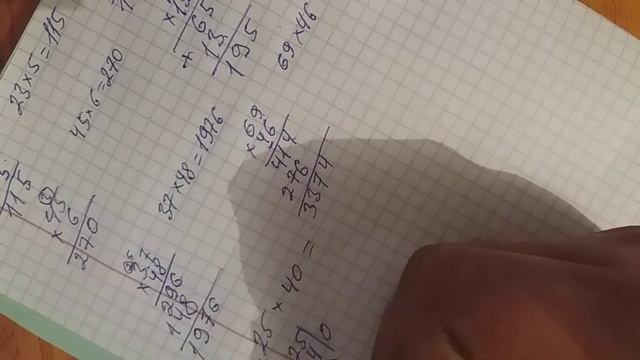 23×5=115
5
115
45×6=270
45
× 6
270
×13
65
+ 13
195
37×48=1776
× 37
48
296
148
1776
69×46
× 69
46
414
276
3374
25 × 40 =
25
40